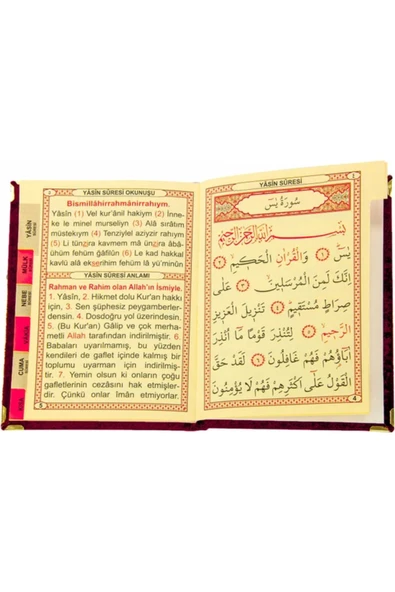 YÂSİN SÛRESİ OKUNUŞU
Bismillâhirrahmânirrahıym.
Yâsîn (1) Vel kur'ânil hakiym (2) İnne-
ke le minel murseliyn (3) Alâ sırâtim
müstekıym (4) Tenziylel aziyzir rahıym
(5) Li tünzira kavmem mâ ünzira âbâ-
ühüm fehüm ğâfilûn (6) Le kad hakkal
kavlü alâ ekserihim fehüm lâ yü'minûn
YÂSİN SÛRESİ ANLAMI
Rahman ve Rahim olan Allah'ın ismiyle.
1. Yâsîn, 2. Hikmet dolu Kur'an hakkı
için, 3. Sen şüphesiz peygamberler-
densin. 4. Dosdoğru yol üzerindesin.
5. (Bu Kur'an) Gâlip ve çok merha-
metli Allah tarafından indirilmiştir. 6.
Babaları uyarılmamış, bu yüzden
kendileri de gaflet içinde kalmış bir
toplumu uyarman için indirilmiş-
tir. 7. Yemin olsun ki onların çoğu
gafletlerinin cezâsını hak etmişler-
dir. Çünkü onlar îman etmiyorlar.
5
YÂSİN
MÜLK
NEBE
CUMA
YÂSİN SÛRESİ
سُورَةُ يٰسٓ
بِسْمِ اللّٰهِ الرَّحْمٰنِ الرَّحِيمِ
يٰسٓ ﴿١﴾ وَالْقُرْاٰنِ الْحَكِيمِ ﴿٢﴾
اِنَّكَ لَمِنَ الْمُرْسَلِينَ ﴿٣﴾ عَلٰى
صِرَاطٍ مُسْتَقِيمٍ ﴿٤﴾ تَنْزِيلَ الْعَزِيزِ
الرَّحِيمِ ﴿٥﴾ لِتُنْذِرَ قَوْمًا مَٓا اُنْذِرَ
اٰبَٓاؤُهُمْ فَهُمْ غَافِلُونَ ﴿٦﴾ لَقَدْ حَقَّ
الْقَوْلُ عَلٰٓى اَكْثَرِهِمْ فَهُمْ لَا يُؤْمِنُونَ
4